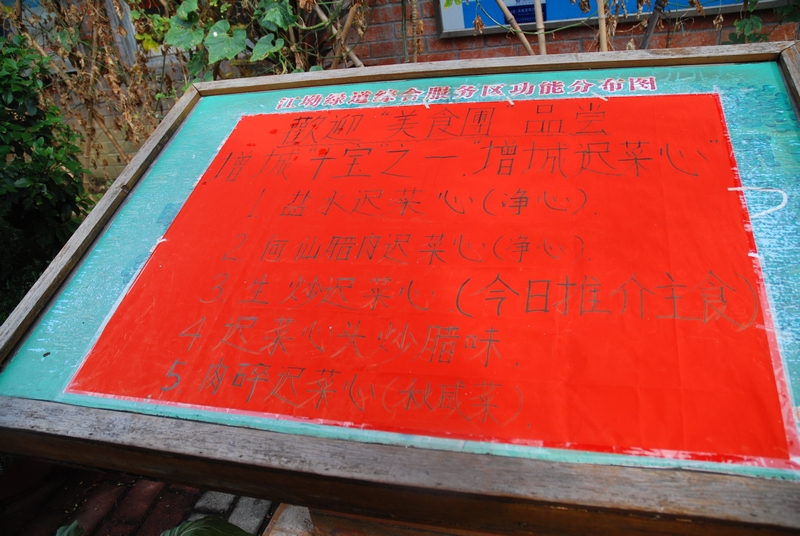 江坳绿道综合服务区功能分布图
歡迎"美食團"品尝
增城"十宝"之一"增城迟菜心"
1 盐水迟菜心(净心)
2 何仙腊月迟菜心(净心)
3 生炒迟菜心(今日推介主食)
4 迟菜心头炒腊味
5 肉碎迟菜心(秋咸菜)